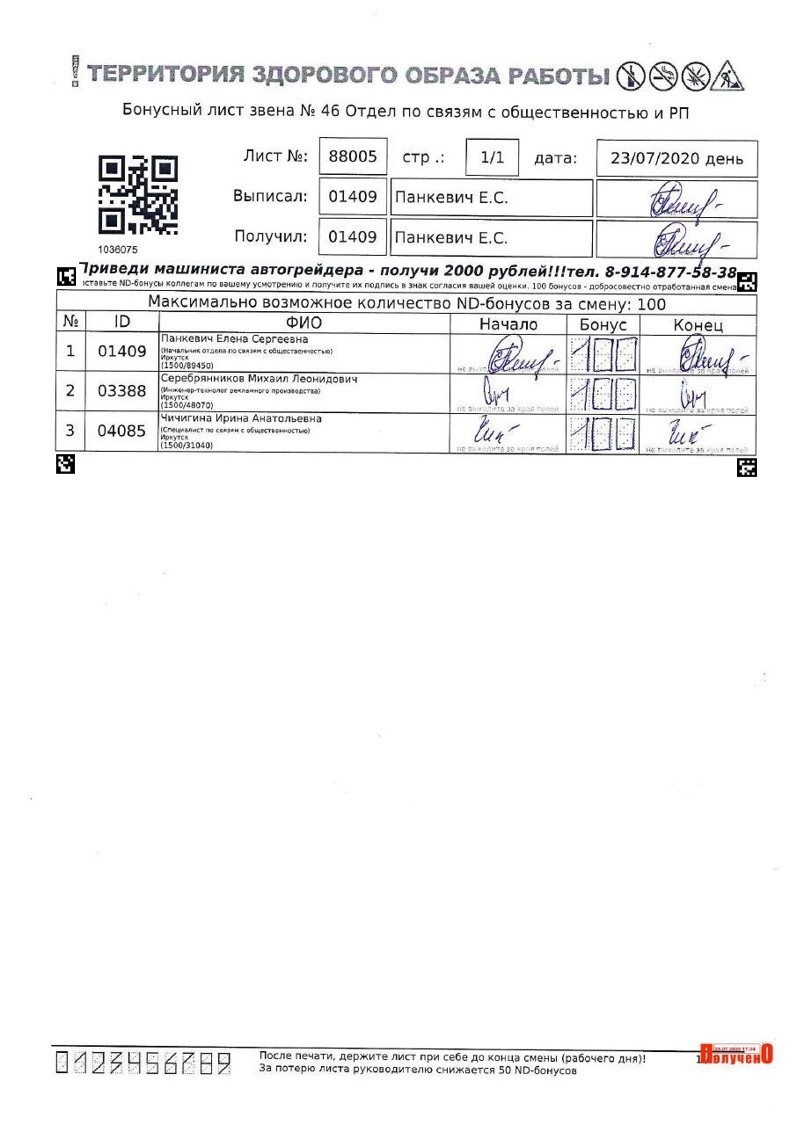 ! ТЕРРИТОРИЯ ЗДОРОВОГО ОБРАЗА РАБОТЫ
Бонусный лист звена № 46 Отдел по связям с общественностью и РП
Лист №: 88005 стр .: 1/1 дата: 23/07/2020 день
Выписал: 01409 Панкевич Е.С.
Получил: 01409 Панкевич Е.С.
1036075
Приведи машиниста автогрейдера - получи 2000 рублей!!!тел. 8-914-877-58-38
ND-бонусы коллегам по вашему усмотрению и получите их подпись в знак согласия вашей оценки. 100 бонусов - добросовестно отработанная смена
Максимально возможное количество ND-бонусов за смену: 100
№ ID ФИО Начало Бонус Конец
1 01409 Панкевич Елена Сергеевна 100
(Начальник отдела по связям с общественностью)
Иркутск
(1500/89450)
не выходите за края полей
2 03388 Серебрянников Михаил Леонидович 100
(Инженер-технолог рекламного производства)
Иркутск
(1500/48070)
не выходите за края полей не выходите за края полей
3 04085 Чичигина Ирина Анатольевна 100
(Специалист по связям с общественностью)
Иркутск
(1500/31040)
не выходите за края полей не выходите за края полей
0123456789
После печати, держите лист при себе до конца смены (рабочего дня)!
За потерю листа руководителю снижается 50 ND-бонусов
Получено